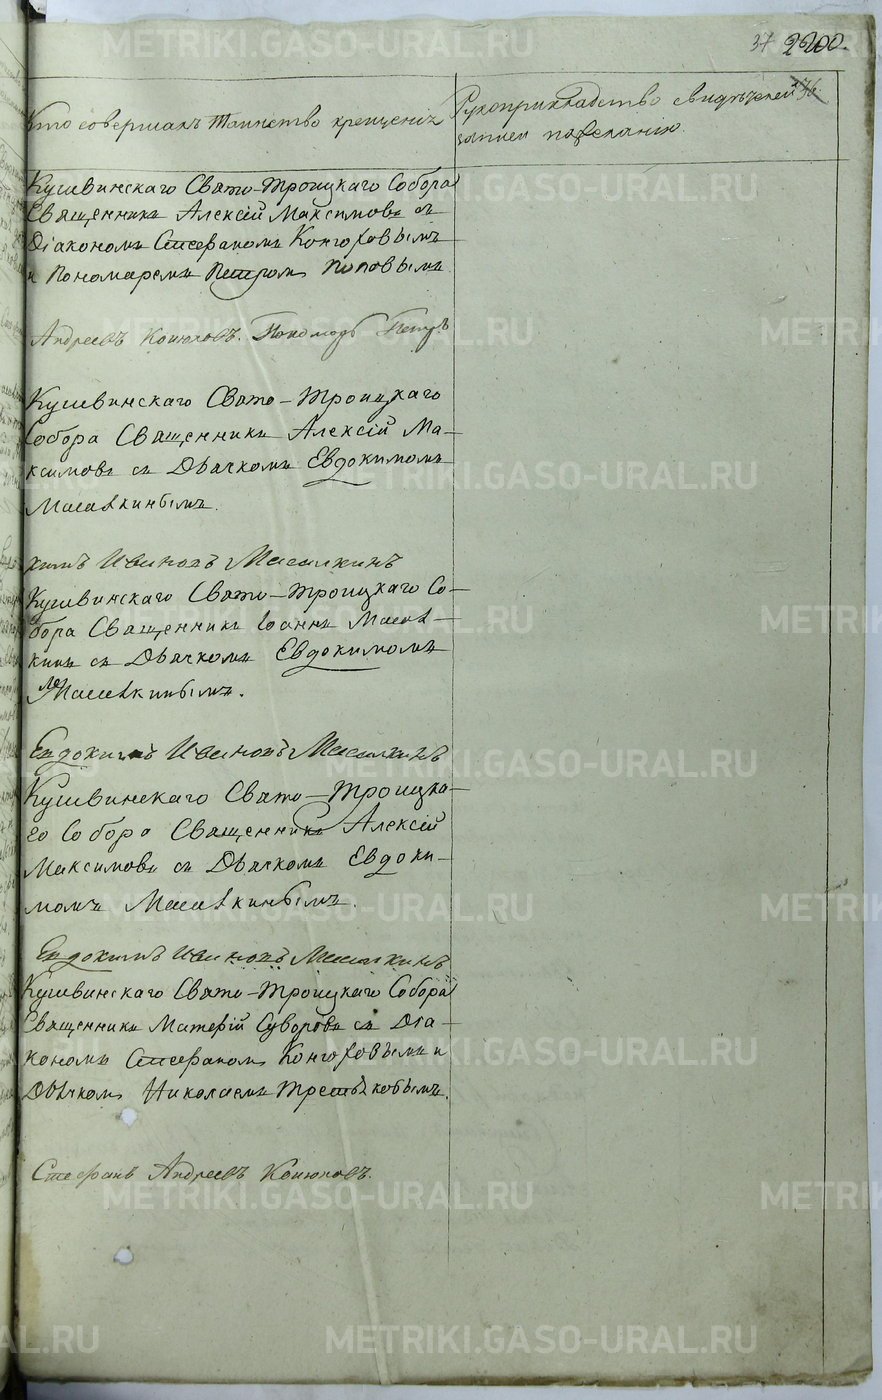 37 2200.
Кто совершалъ таинство крещенія
Рукоприкладство свидѣтелей
записи по желанію.
Кушвинскаго Свято-Троицкаго Собора
Священникъ Алексій Максимовъ съ
Діакономъ Стефаномъ Конюховымъ
и Пономаремъ Петромъ Поповымъ.
Андреевъ Конюховъ. Пономарь Петръ
Кушвинскаго Свято-Троицкаго
Собора Священникъ Алексій Ма-
ксимовъ съ Дьячкомъ Евдокимомъ
Масалкинымъ.
кимъ Ивановъ Масалкинъ
Кушвинскаго Свято-Троицкаго Со-
бора Священникъ Іоаннъ Масал-
кинъ съ Дьячкомъ Евдокимомъ
Масалкинымъ.
Евдокимъ Ивановъ Масалкинъ
Кушвинскаго Свято-Троицка-
го Собора Священникъ Алексій
Максимовъ съ Дьячкомъ Евдоки-
момъ Масалкинымъ.
Евдокимъ Ивановъ Масалкинъ
Кушвинскаго Свято-Троицкаго Собора
Священникъ Матѳій Суворовъ съ Діа-
кономъ Стефаномъ Конюховымъ и
Дьячкомъ Николаемъ Третьяковымъ.
Стефанъ Андреевъ Конюховъ.
METRIKI.GASO-URAL.RU